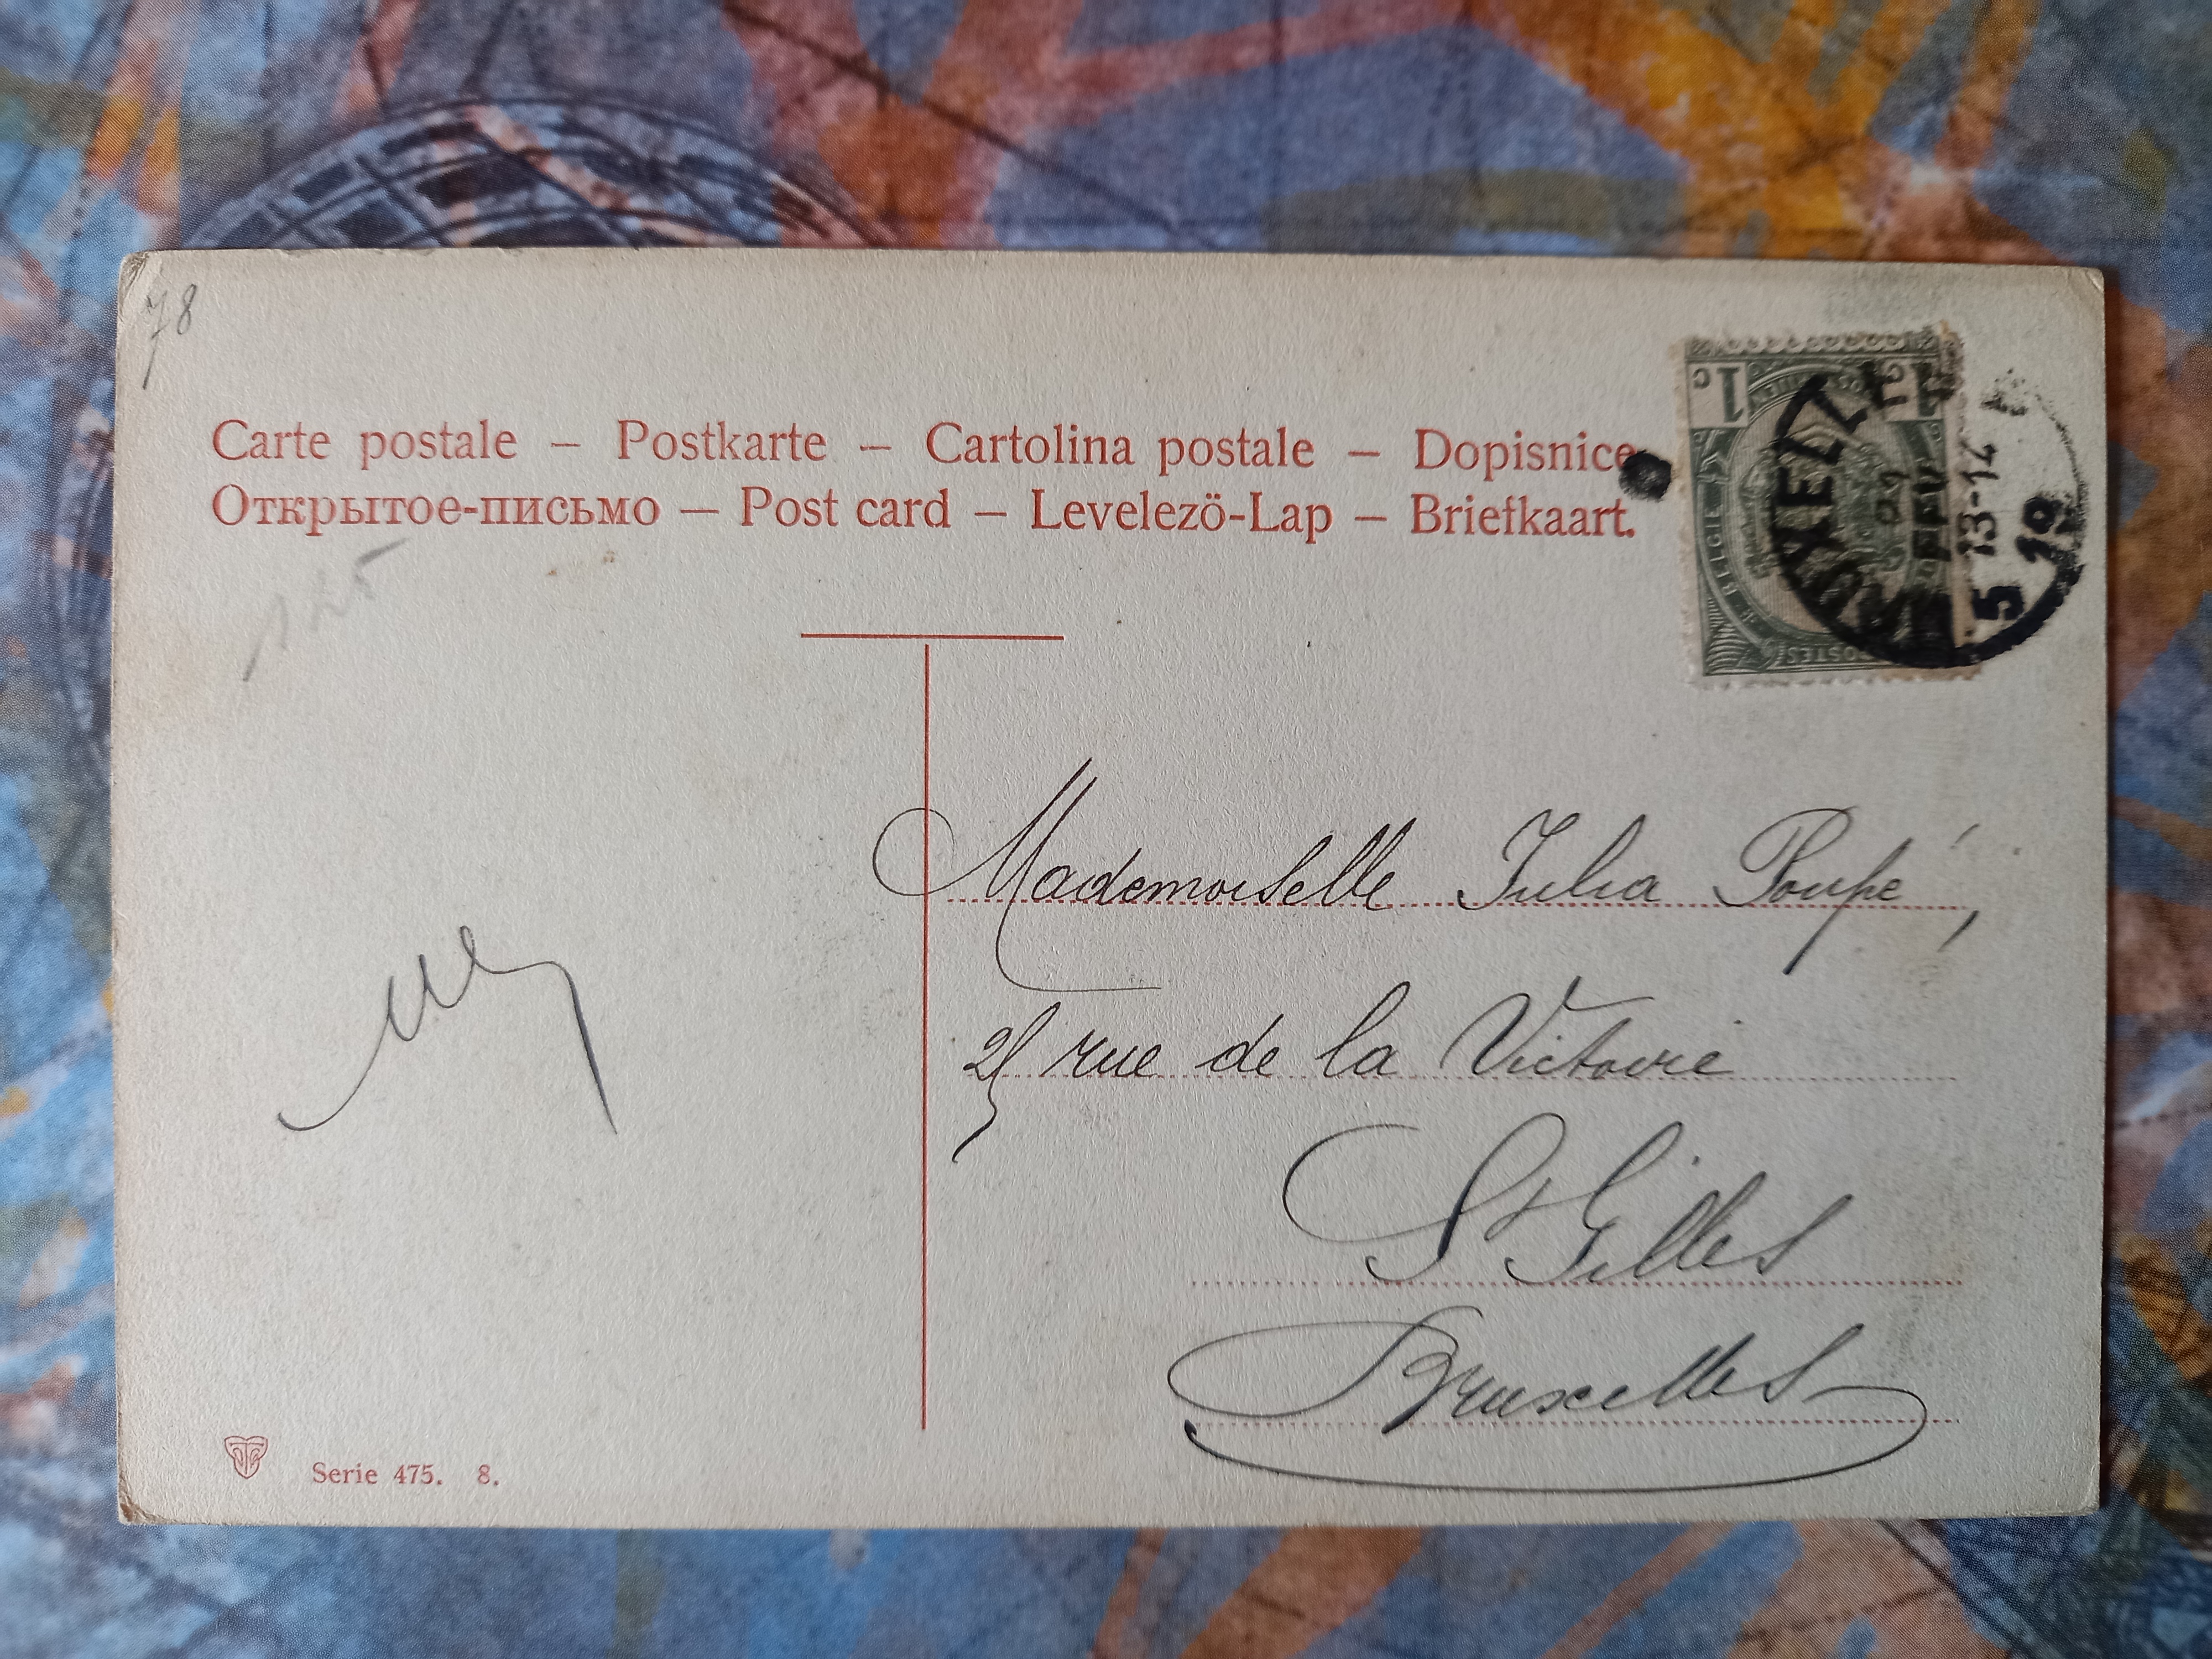 78
Carte postale – Postkarte – Cartolina postale – Dopisnice
Открытое-письмо – Post card – Levelezö-Lap – Briefkaart.
1c
BELGIE
POSTES
BRUXELLE
13-14
5
19
125
Mademoiselle Julia Poupé,
25 rue de la Victoire
St Gilles
Bruxelles
Serie 475. 8.